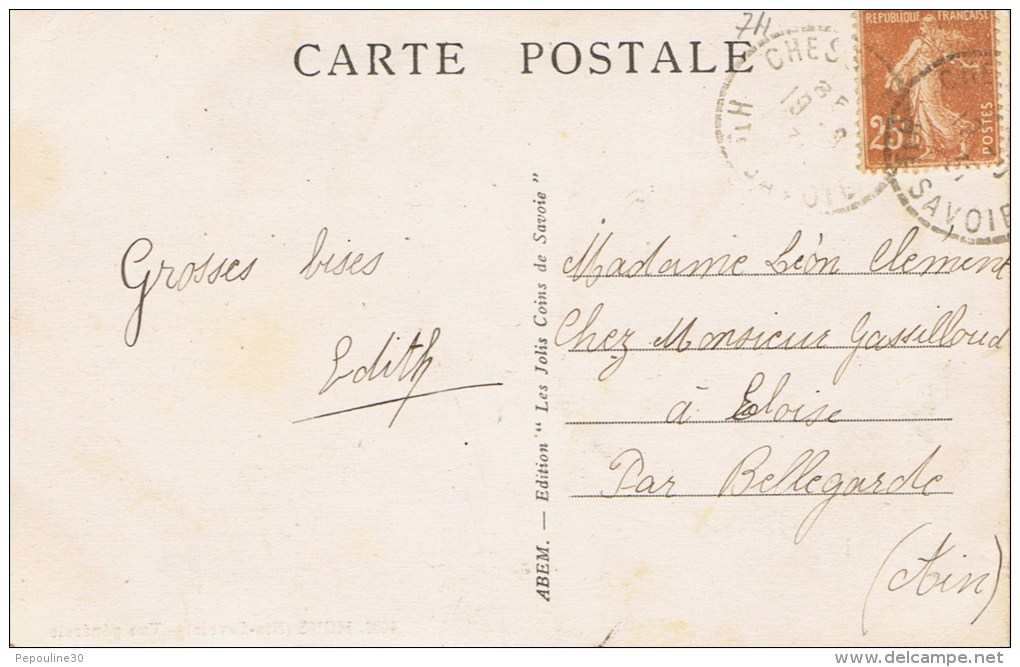 7H
CARTE POSTALE
REPUBLIQUE FRANÇAISE
25
POSTES
SAVOIE
SAVOIE
Grosses bises
Edith
ABEM. — Edition " Les Jolis Coins de Savoie "
Madame Léon Clément
Chez Monsieur Gassilloud
à Eloise
Par Bellegarde
(Ain)
Pepouline30